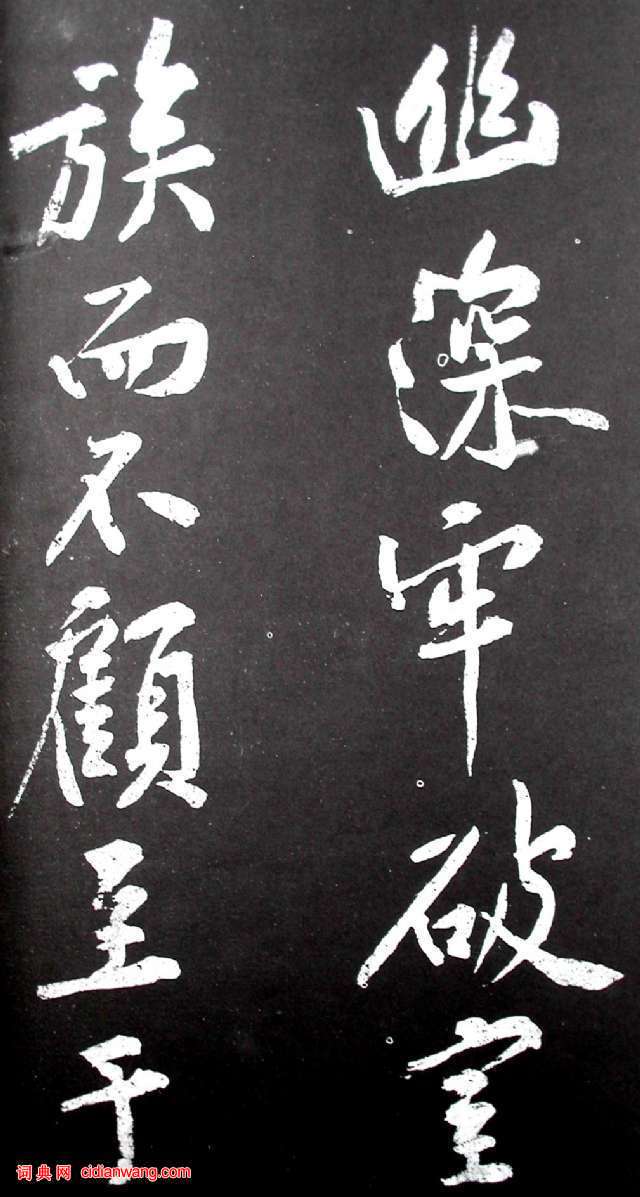 幽深牢破室
族而不顧至于
词典网 cidianwang.com